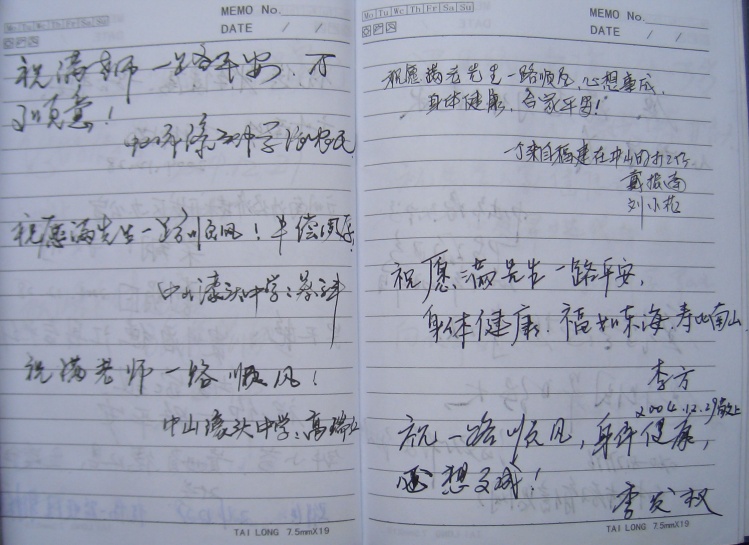 MEMO No.
Mo Tu We Th Fr Sa Su
DATE / /
祝满老师一路平安,万
事如意!
祝愿满先生一路顺风!
中山濠头中学:
祝满老师一路顺风!
中山濠头中学:高瑞
TAI LONG 7.5mmX19
MEMO No.
Mo Tu We Th Fr Sa Su
DATE / /
祝愿满老先生一路顺风,心想事成,
身体健康,合家平安!
一个来自福建在中山的打工仔
戴振南
刘小花
祝愿满先生一路平安,
身体健康.福如东海.寿比南山
李方
2004.12.29晚上
祝一路顺风,身体健康,
心想事成!
李发权
TAI LONG 7.5mmX19